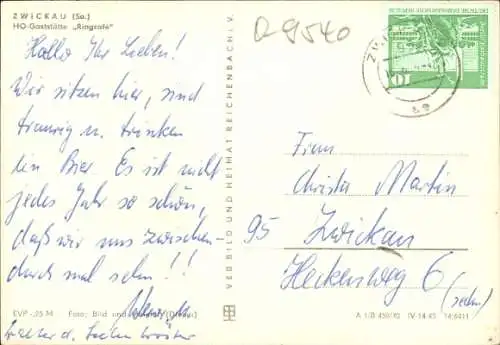 ZWICKAU (Sa.)
HO-Gaststätte „Ringcafé"
Hallo Ihr Lieben!
Wir sitzen hier, sind
traurig u. trinken
ein Bier. Es ist nicht
jedes Jahr so schön,
daß wir uns zwischen-
durch mal sehn!!
EVP -,25 M Foto: Bild und Heimat
VEB BILD UND HEIMAT REICHENBACH I. V.
D 9540
10
Frau
Christa Martin
95 Zwickau
Heckenweg 6
A 1/B 459/80 IV-14-45